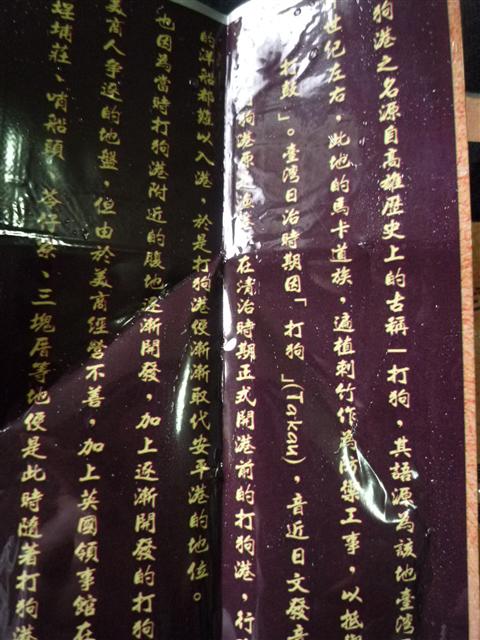 狗港之名源自高雄歷史上的古稱—打狗，其語源為該地臺灣
世紀左右，此地的馬卡道族，遍植刺竹作為防禦工事，以抵禦
打鼓」。臺灣日治時期因「打狗」(Takau)，音近日文發音
狗港原 在清治時期正式開港前的打狗港，行
的洋船都難以入港，於是打狗港便漸漸取代安平港的地位。
也因為當時打狗港附近的腹地逐漸開發，加上逐漸開發的打狗
美商人爭逐的地盤，但由於美商經營不善，加上英國領事館在
埕埔莊、哨船頭 苓仔寮、三塊厝等地便是此時隨著打狗港